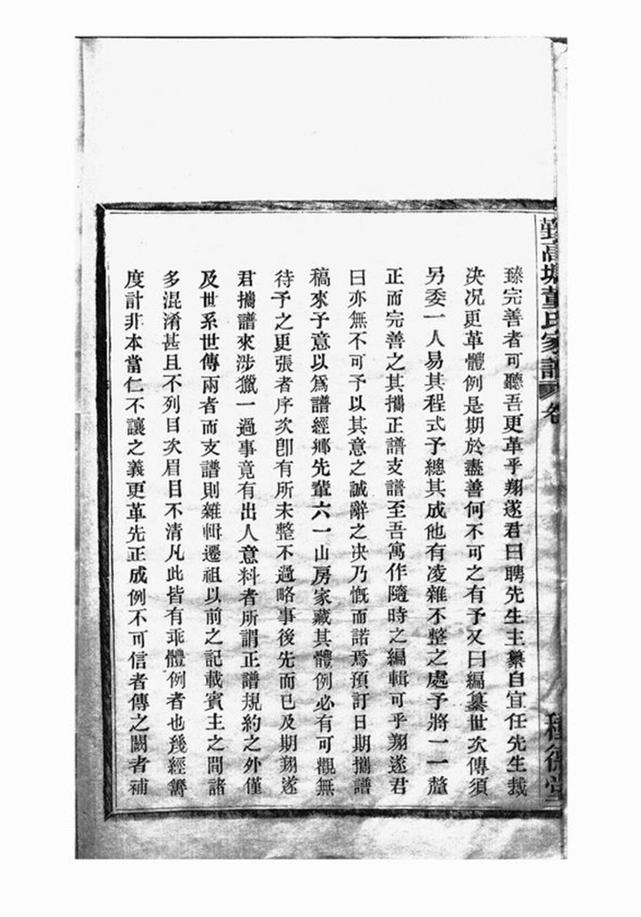 鄞高塘董氏家譜 卷
種德堂
臻完善者可聽吾更革乎翔遂君曰聘先生主纂自宜任先生裁
决况更革體例是期於盡善何不可之有予又曰編纂世次傳須
另委一人易其程式予總其成他有凌雜不整之處予將一一釐
正而完善之其攜正譜支譜至吾寓作隨時之編輯可乎翔遂君
曰亦無不可予以其意之誠辭之决乃慨而諾焉預訂日期攜譜
稿來予意以爲譜經鄉先輩六一山房家藏其體例必有可觀無
待予之更張者序次卽有所未整不過略事後先而已及期翔遂
君攜譜來涉獵一過事竟有出人意料者所謂正譜規約之外僅
及世系世傳兩者而支譜則雜輯遷祖以前之記載賓主之間諸
多混淆甚且不列目次眉目不清凡此皆有乖體例者也幾經籌
度計非本當仁不讓之義更革先正成例不可信者傳之闕者補